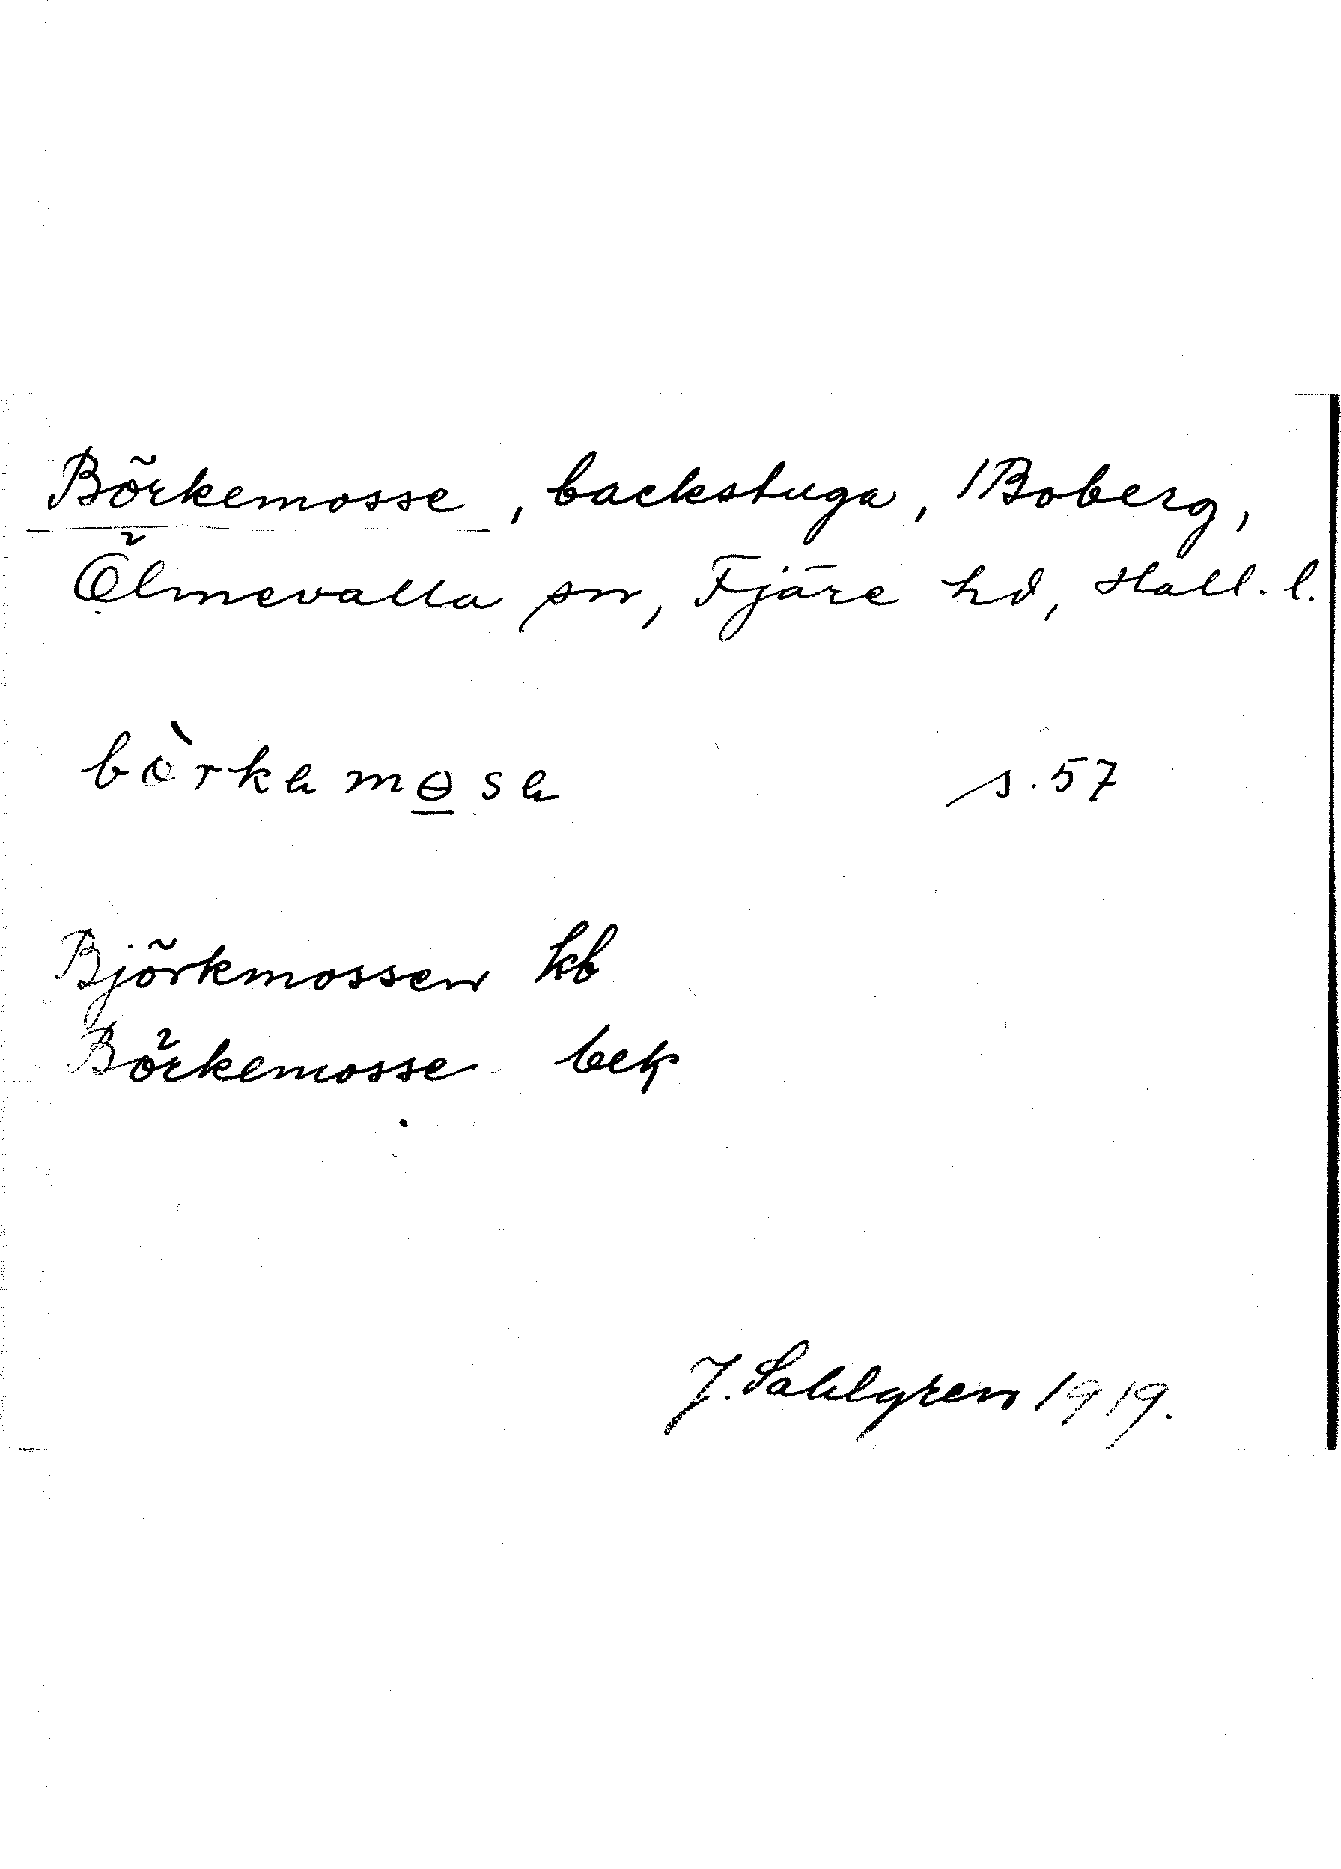 Börkemosse, backstuga, 1 Boberg,
Ölmevalla sn, Fjäre hd, Hall. l.
bòrkamɵsa s. 57
Björkmossen kb
Börkemosse bek
J. Sahlgren 1919.